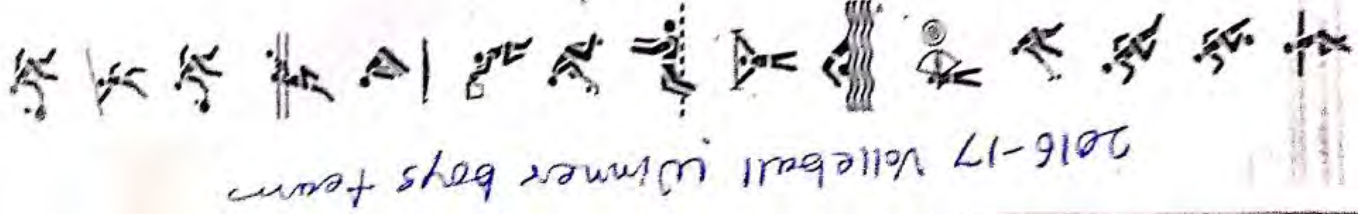 2016-17 Volleball Winner boys team